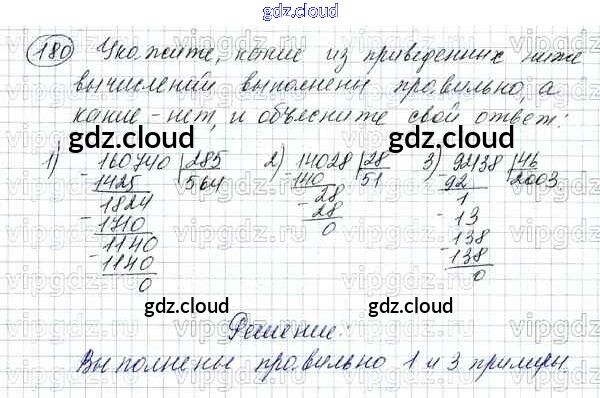 gdz.cloud
180 Укажите, какие из приведенных ниже
вычислений выполнены правильно, а
какие - нет, и объясните свой ответ:
gdz.cloud
gdz.cloud
1) 160740 285
- 1425 564
1824
- 1710
1140
- 1140
0
2) 14028 28
- 140 51
28
- 28
0
3) 92138 46
- 92 2003
1
- 13
138
- 138
0
gdz.cloud
gdz.cloud
Решение:
Выполнены правильно 1 и 3 примеры